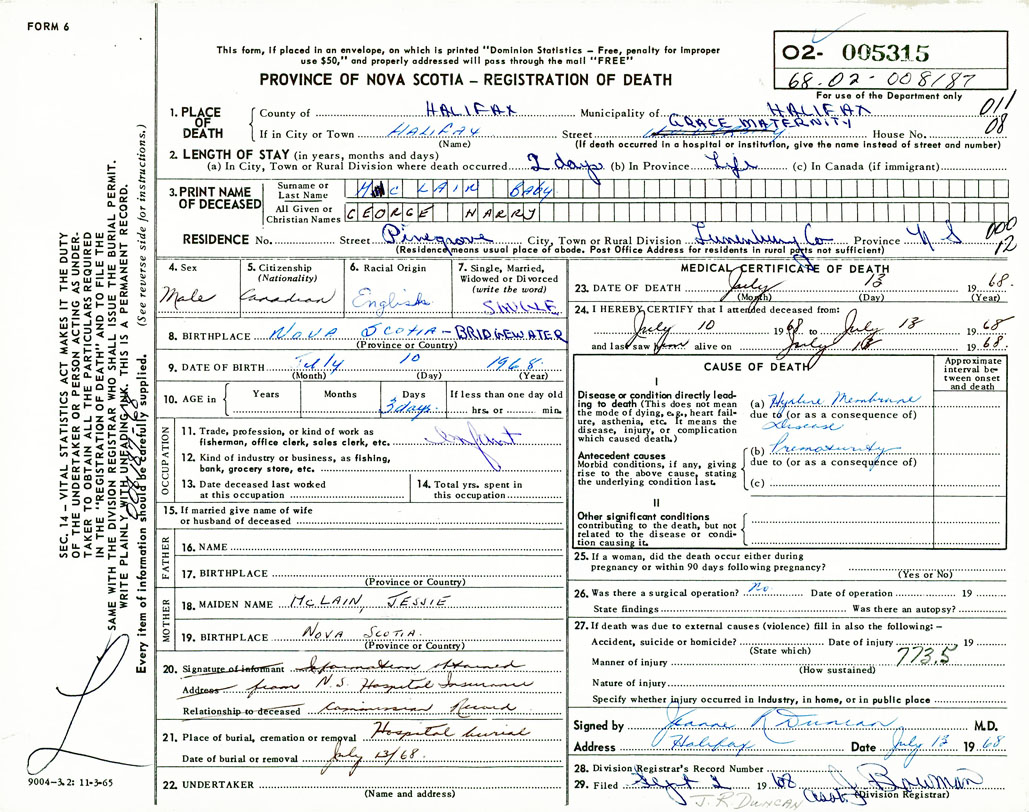 FORM 6
This form, if placed in an envelope, on which is printed "Dominion Statistics – Free, penalty for improper
use $50," and properly addressed will pass through the mail "FREE"
PROVINCE OF NOVA SCOTIA – REGISTRATION OF DEATH
02- 005315
68.02-008187
For use of the Department only
011
08
1. PLACE OF DEATH
County of HALIFAX Municipality of HALIFAX
GRACE MATERNITY
If in City or Town HALIFAX Street House No.
(Name) (If death occurred in a hospital or institution, give the name instead of street and number)
2. LENGTH OF STAY (in years, months and days)
(a) In City, Town or Rural Division where death occurred 2 days (b) In Province Life (c) In Canada (if immigrant)
3. PRINT NAME OF DECEASED
Surname or Last Name MC LAIN BABY
All Given or Christian Names GEORGE HARRY
RESIDENCE No. Street Pinegrove City, Town or Rural Division Lunenburg Co Province N S
000
12
(Residence means usual place of abode. Post Office Address for residents in rural parts not sufficient)
4. Sex
Male
5. Citizenship
(Nationality)
Canadian
6. Racial Origin
English
7. Single, Married,
Widowed or Divorced
(write the word)
SINGLE
8. BIRTHPLACE NOVA SCOTIA – BRIDGEWATER
(Province or Country)
9. DATE OF BIRTH July 10 1968
(Month) (Day) (Year)
10. AGE in Years Months Days If less than one day old
3 days hrs. or min.
OCCUPATION
11. Trade, profession, or kind of work as
fisherman, office clerk, sales clerk, etc. Infant
12. Kind of industry or business, as fishing,
bank, grocery store, etc.
13. Date deceased last worked
at this occupation
14. Total yrs. spent in
this occupation
15. If married give name of wife
or husband of deceased
FATHER
16. NAME
17. BIRTHPLACE
(Province or Country)
MOTHER
18. MAIDEN NAME MCLAIN, JESSIE
19. BIRTHPLACE NOVA SCOTIA.
(Province or Country)
20. Signature of informant Information obtained
Address from N.S. Hospital Insurance
Relationship to deceased Commission Record
21. Place of burial, cremation or removal Hospital burial
Date of burial or removal July 13/68
22. UNDERTAKER
(Name and address)
MEDICAL CERTIFICATE OF DEATH
23. DATE OF DEATH July 13 1968.
(Month) (Day) (Year)
24. I HEREBY CERTIFY that I attended deceased from:
July 10 1968 to July 13 1968
and last saw him alive on July 13 1968
CAUSE OF DEATH
Approximate
interval be-
tween onset
and death
I
Disease or condition directly lead-
ing to death (This does not mean
the mode of dying, e.g., heart fail-
ure, asthenia, etc. It means the
disease, injury, or complication
which caused death.)
(a) Hyaline Membrane
due to (or as a consequence of)
Disease
Antecedent causes
Morbid conditions, if any, giving
rise to the above cause, stating
the underlying condition last.
(b) Prematurity
due to (or as a consequence of)
(c)
II
Other significant conditions
contributing to the death, but not
related to the disease or condi-
tion causing it.
25. If a woman, did the death occur either during
pregnancy or within 90 days following pregnancy?
(Yes or No)
26. Was there a surgical operation? no Date of operation 19
State findings Was there an autopsy?
27. If death was due to external causes (violence) fill in also the following: –
Accident, suicide or homicide? Date of injury 19
(State which)
773.5
Manner of injury
(How sustained)
Nature of injury
Specify whether injury occurred in Industry, in home, or in public place
Signed by Jeanne R Duncan M.D.
Address Halifax Date July 13 1968
28. Division Registrar's Record Number
29. Filed Sept 2 1968 asst J. Bowman
(Division Registrar)
J. R DUNCAN
SEC. 14 – VITAL STATISTICS ACT MAKES IT THE DUTY
OF THE UNDERTAKER OR PERSON ACTING AS UNDER-
TAKER TO OBTAIN ALL THE PARTICULARS REQUIRED
IN THE "REGISTRATION OF DEATH" AND TO FILE THE
SAME WITH THE DIVISION REGISTRAR WHO SHALL ISSUE THE BURIAL PERMIT.
WRITE PLAINLY WITH UNFADING INK. THIS IS A PERMANENT RECORD.
Every item of information should be carefully supplied. (See reverse side for instructions.)
9004-3.2: 11-3-65